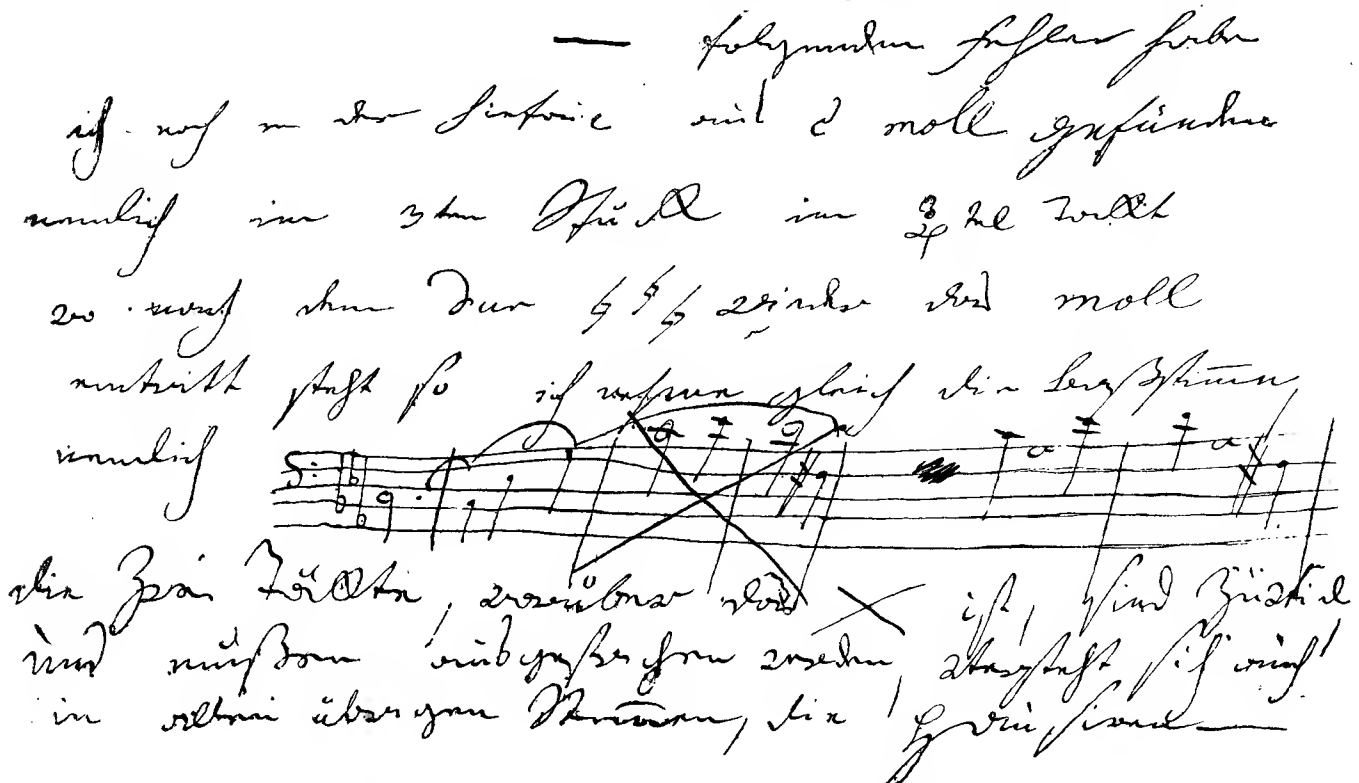 — folgenden Fehler habe
ich noch in der Sinfonie aus C moll gefunden
nemlich im 3ten Stück im 3/4tel Takt
wo nach dem dur ♮ ♮ ♮ wieder das moll
eintritt steht so ich nehme gleich die Baßstimme
nemlich
die Zwei Täkte, worüber das X ist, sind Zuviel
und müßen ausgestrichen werden, versteht sich auch
in allen übrigen Stimmen, die pausiren —